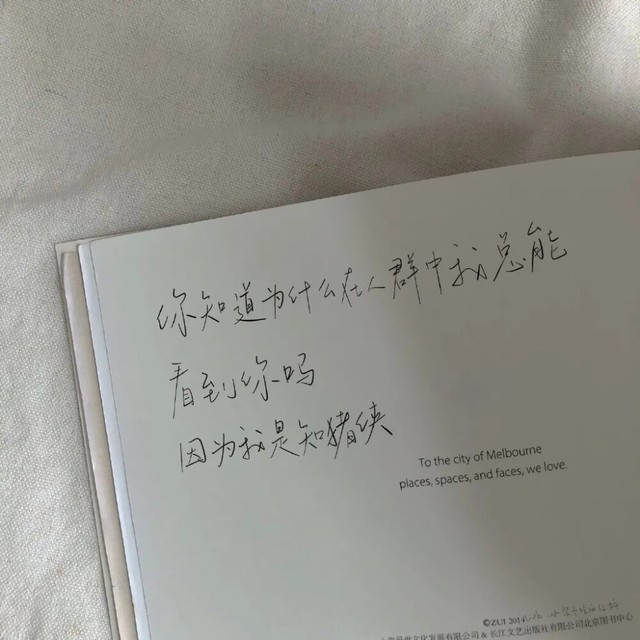 你知道为什么在人群中我总能
看到你吗
因为我是知猪侠
To the city of Melbourne
places, spaces, and faces, we love.
©ZUI 2014
文化发展有限公司 & 长江文艺出版社有限公司北京图书中心